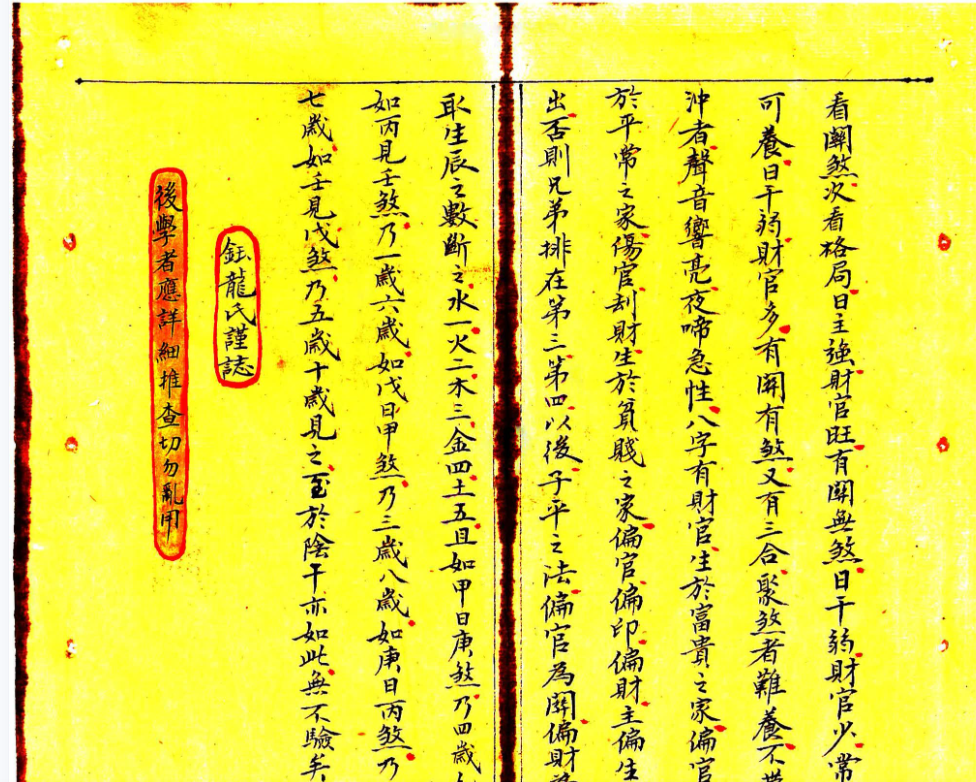 看關煞次看格局日主強財官旺有關無煞日干弱財官少常
可養日干弱財官多有關有煞又有三合聚煞者難養不帶
沖者聲音響亮夜啼急性八字有財官生於富貴之家偏官
於平常之家傷官刮財生於貧賤之家偏官偏印偏財主偏生
出否則兄弟排在第三第四以後子平之法偏官為關偏財
取生辰之數斷之水一火二木三金四土五且如甲日庚煞乃四歲
如丙見壬煞乃一歲六歲如戊日甲煞乃三歲八歲如庚日丙煞乃
七歲如壬見戊煞乃五歲十歲見之至於陰干亦如此無不驗矣
鈺龍氏謹誌
後學者應詳細推查切勿亂用